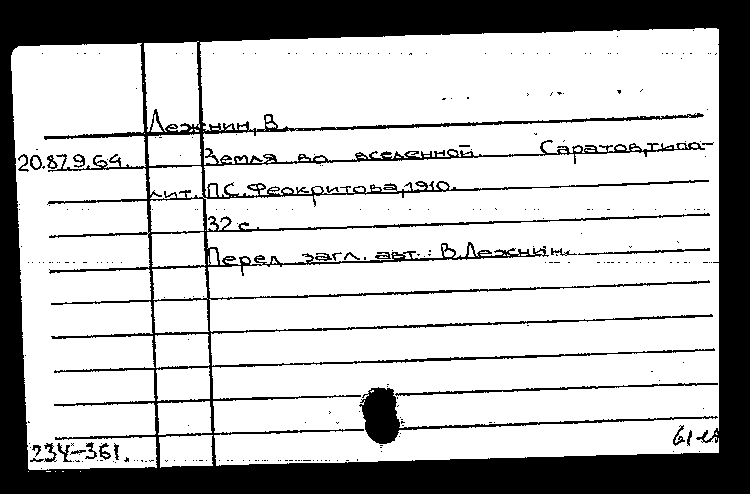 Лежнин, В.
20.87.9.64. Земля во вселенной. Саратов, типо-
лит. П.С. Феокритова, 1910.
32 с.
Перед загл. авт.: В. Лежнин.
234-361.